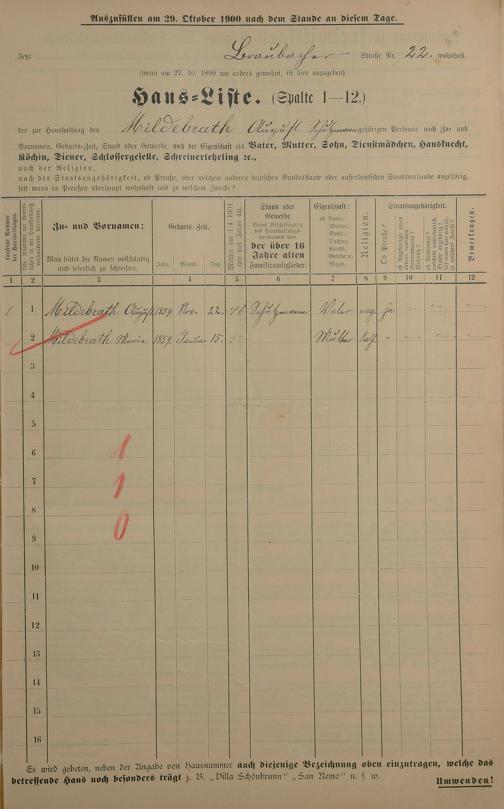 Auszufüllen am 29. Oktober 1900 nach dem Stande an diesem Tage.
Jetzt Braubacher Straße Nr. 22. wohnhaft.
(wenn am 27. 10. 1899 wo anders gewohnt, ist dies anzugeben)
Haus-Liste. (Spalte 1—12.)
der zur Haushaltung des Mildebrath August Schutzmann gehörigen Personen nach Zu- und
Vornamen, Geburts-Zeit, Stand oder Gewerbe, nach der Eigenschaft als Vater, Mutter, Sohn, Dienstmädchen, Hausknecht,
Köchin, Diener, Schlossergeselle, Schreinerlehrling ꝛc.,
nach der Religion,
nach der Staatsangehörigkeit, ob Preuße, oder welchem anderen deutschen Bundesstaate oder außerdeutschen Staatsverbande angehörig,
seit wann in Preußen überhaupt wohnhaft und zu welchem Zwecke?
Zu- und Vornamen:
Man bittet die Namen vollständig
und leserlich zu schreiben.
Geburts-Zeit.
Jahr. Monat. Tag.
Mithin am 1 4 1901
wie viel Jahre alt.
Stand oder
Gewerbe.
der über 16
Jahre alten
Familienmitglieder.
Eigenschaft:
ob Vater,
Mutter,
Sohn,
Tochter,
Knecht,
Geselle,
Magd.
Religion.
Staatsangehörigkeit.
Ob Preuße?
Bemerkungen.
1 2 3 4 5 6 7 8 9 10 11 12
1 1 Mildebrath August 1854 Nov. 22. 46 Schutzmann Vater evg. ja — — —
2 Mildebrath Maria 1859 Januar 15. 42 Mutter kath. " — — —
3
4
5
6 1
7 1
8 0
9
10
11
12
13
14
15
16
Es wird gebeten, neben der Angabe von Hausnummer auch diejenige Bezeichnung oben einzutragen, welche das
betreffende Haus noch besonders trägt z. B. „Villa Schönbrunn" „San Remo" u. s. w. Umwenden!